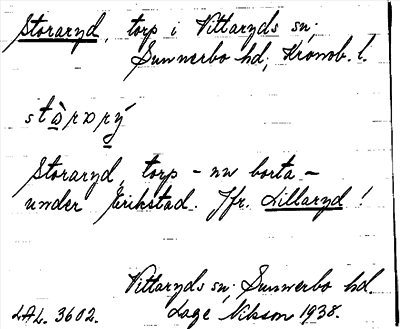 Storaryd, torp i Vittaryds sn;
Sunnerbo hd; Kronob. l.
stòrarý
Storaryd, torp – nu borta –
under Erikstad. Jfr. Lillaryd!
Vittaryds sn; Sunnerbo hd.
LAL. 3602. Lage Nilsson 1938.